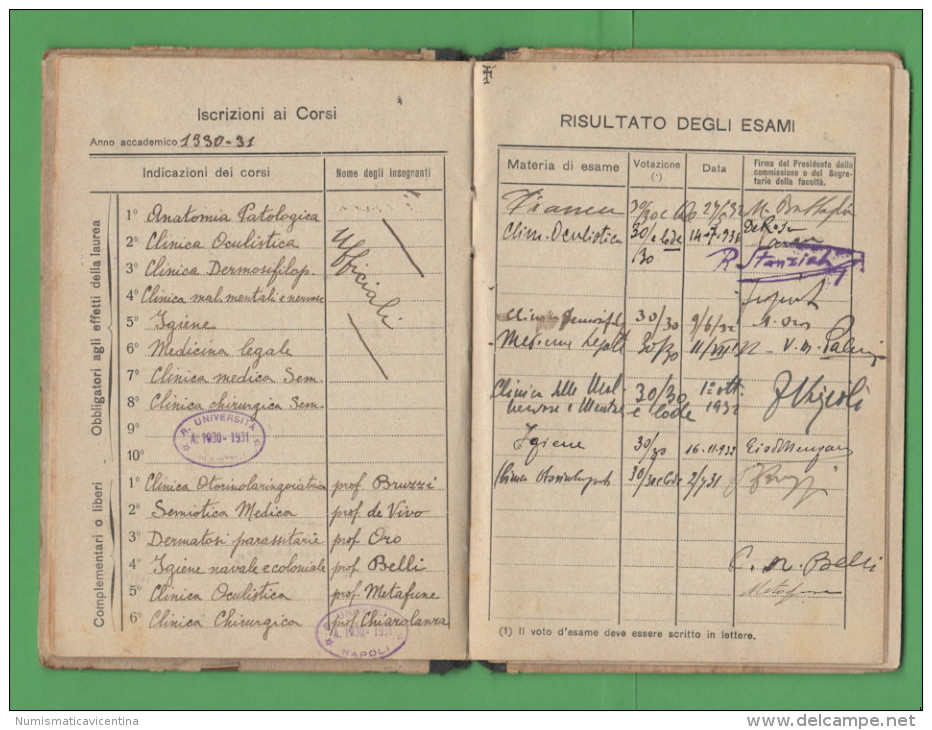 Iscrizioni ai Corsi
Anno accademico 1930-31
Indicazioni dei corsi Nome degli Insegnanti
Obbligatori agli effetti della laurea
1° Anatomia Patologica
2° Clinica Oculistica
3° Clinica Dermosifilop.
4° Clinica mal. mentali e nervose
5° Igiene
6° Medicina legale
7° Clinica medica Sem.
8° Clinica chirurgica Sem.
9°
10°
Ufficiali
R. UNIVERSITÀ
A. 1930-1931
NAPOLI
Complementari o liberi
1° Clinica Otorinolaringoiatrica prof. Bruzzi
2° Semiotica Medica prof. de Vivo
3° Dermatosi parassitarie prof. Oro
4° Igiene navale e coloniale prof. Belli
5° Clinica Oculistica prof. Metafune
6° Clinica Chirurgica prof. Chiarolanza
A. 1930-1931
NAPOLI
RISULTATO DEGLI ESAMI
Materia di esame Votazione (¹) Data Firma del Presidente della commissione o del Segretario della facoltà.
Clin. Oculistica 30/30 e lode
R Stanziale
30/30 9/6/32
Medicina legale 30/30
Clinica delle Mal. nervose e Mentali 30/30 e lode 1° ott. 1932
Igiene 30/30 16-11-932
Clinica 30/30 e lode
C. M. Belli
Metafune
(1) Il voto d'esame deve essere scritto in lettere.
Numismaticavicentina
delcampe.net